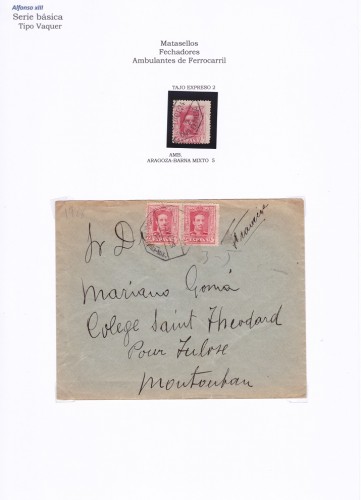 Alfonso xIII
Serie básica
Tipo Vaquer
Matasellos
Fechadores
Ambulantes de Ferrocarril
TAJO EXPRERO 2
AMB.
ARAGOZA-BARNA MIXTO 5
Sr D
Francia
Mariano Gomá
Colege Saint Theodard
Pour Tulose
Montouban